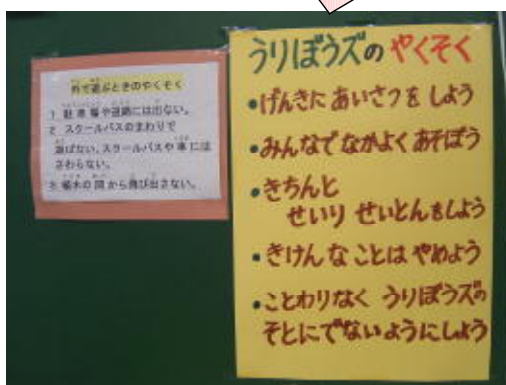 外で遊ぶときのやくそく
1 駐車場や道路には出ない。
2 スクールバスのまわりで
遊ばない、スクールバスや車には
さわらない。
3 植木の間から飛び出さない。
うりぼうズの やくそく
•げんきに あいさつを しよう
•みんなで なかよく あそぼう
•きちんと
せいり せいとんをしよう
•きけんな ことは やめよう
•ことわりなく うりぼうズの
そとにでないようにしよう